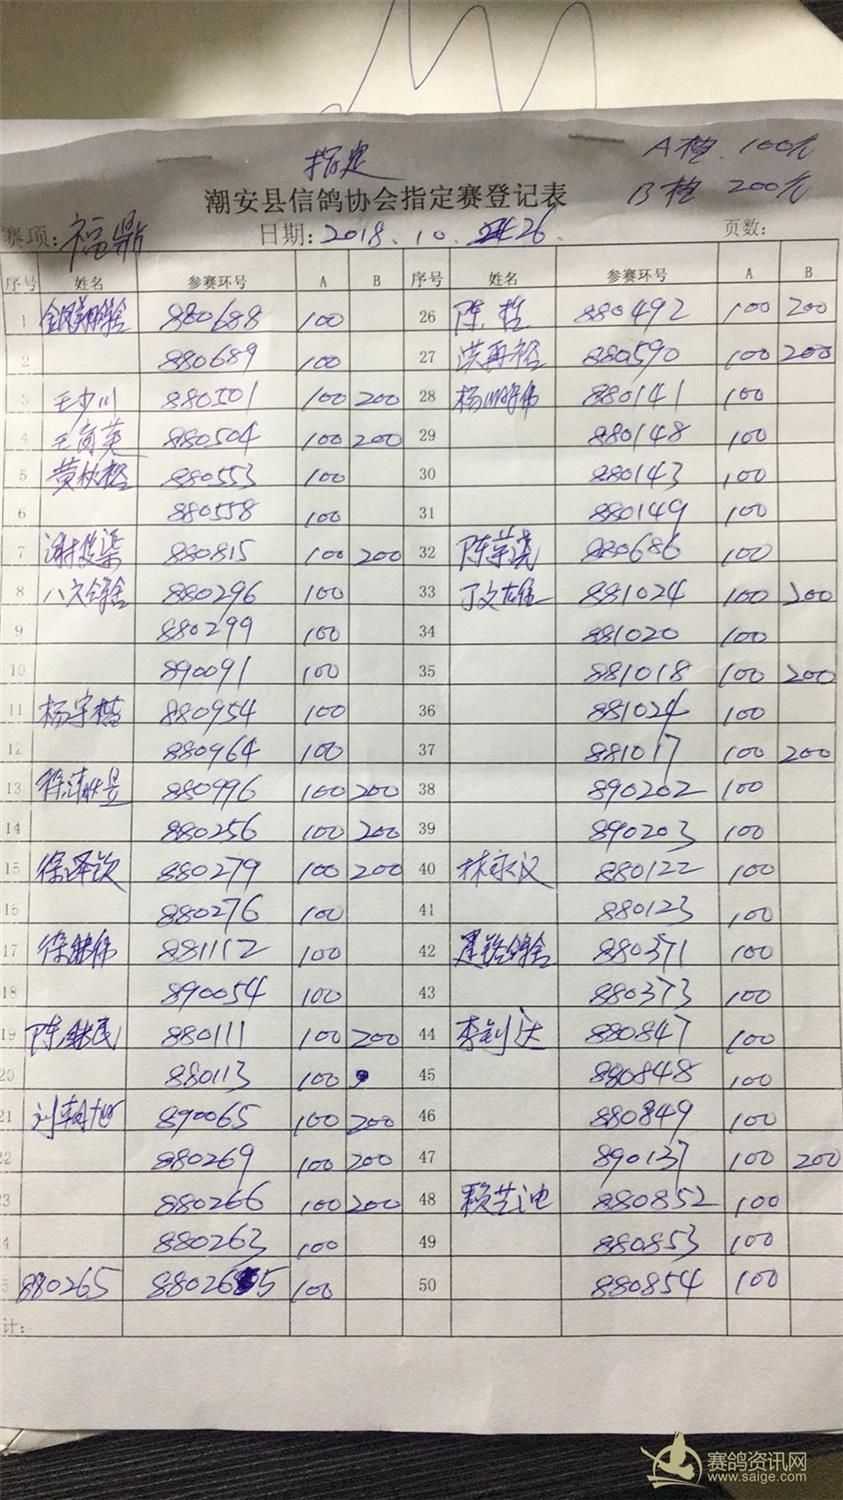 指定
A档 100元
潮安县信鸽协会指定赛登记表
B档 200元
赛项: 福鼎 日期: 2018.10.26. 页数:
序号 姓名 参赛环号 A B 序号 姓名 参赛环号 A B
1 880688 100 26 陈哲 880492 100 200
2 880689 100 27 洪再裕 880590 100 200
3 王少川 880501 100 200 28 880141 100
4 880504 100 200 29 880148 100
5 880553 100 30 880143 100
6 880558 100 31 880149 100
7 880815 100 200 32 880686 100
8 880296 100 33 丁文雄 881024 100 200
9 880299 100 34 881020 100
10 890091 100 35 881018 100 200
11 杨宇楷 880954 100 36 881024 100
12 880964 100 37 881017 100 200
13 880996 100 200 38 890202 100
14 880256 100 200 39 890203 100
15 徐泽钦 880279 100 200 40 林永汉 880122 100
16 880276 100 41 880123 100
17 徐继伟 881112 100 42 880371 100
18 890054 100 43 880373 100
19 陈继民 880111 100 200 44 李创达 880847 100
20 880113 100 45 880848 100
21 刘朝旭 890065 100 200 46 880849 100
22 880269 100 200 47 890137 100 200
23 880266 100 200 48 赖芝迪 880852 100
4 880263 100 49 880853 100
5 880265 880265 100 50 880854 100
计:
赛鸽资讯网
www.saige.com